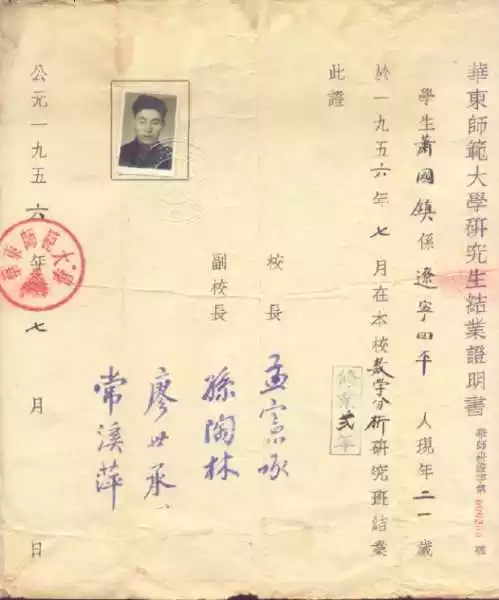 華東師範大學研究生結業證明書
華師研證字第 號
學生蕭國鎮係遼寧四平人現年二一歲
於一九五六年七月在本校數學分析研究班結業
修業弍年
此證
校長 孟憲承
副校長 孫陶林
廖世承
常溪萍
公元一九五六年七月 日
華東師範大學